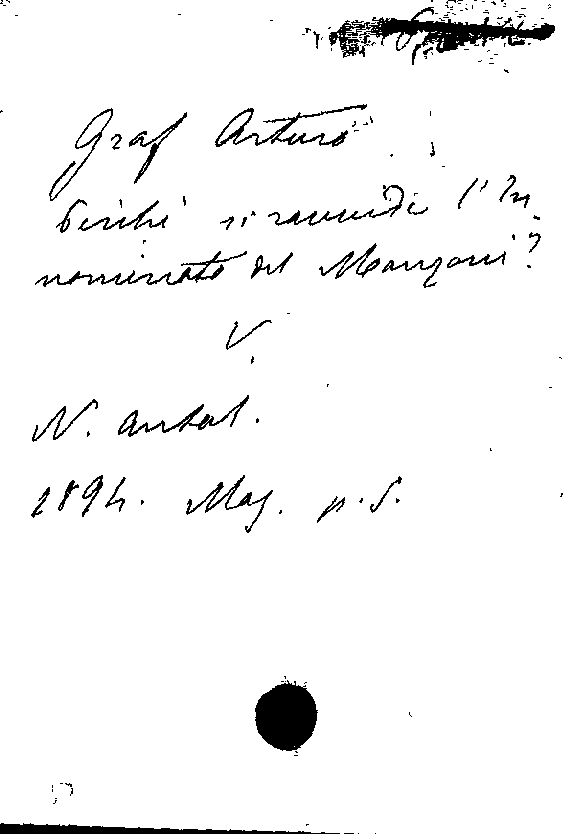 Graf Arturo
Perchè si ravvide l'In
nominato del Manzoni?
V.
N. Antol.
1894. Mag. p. 5.